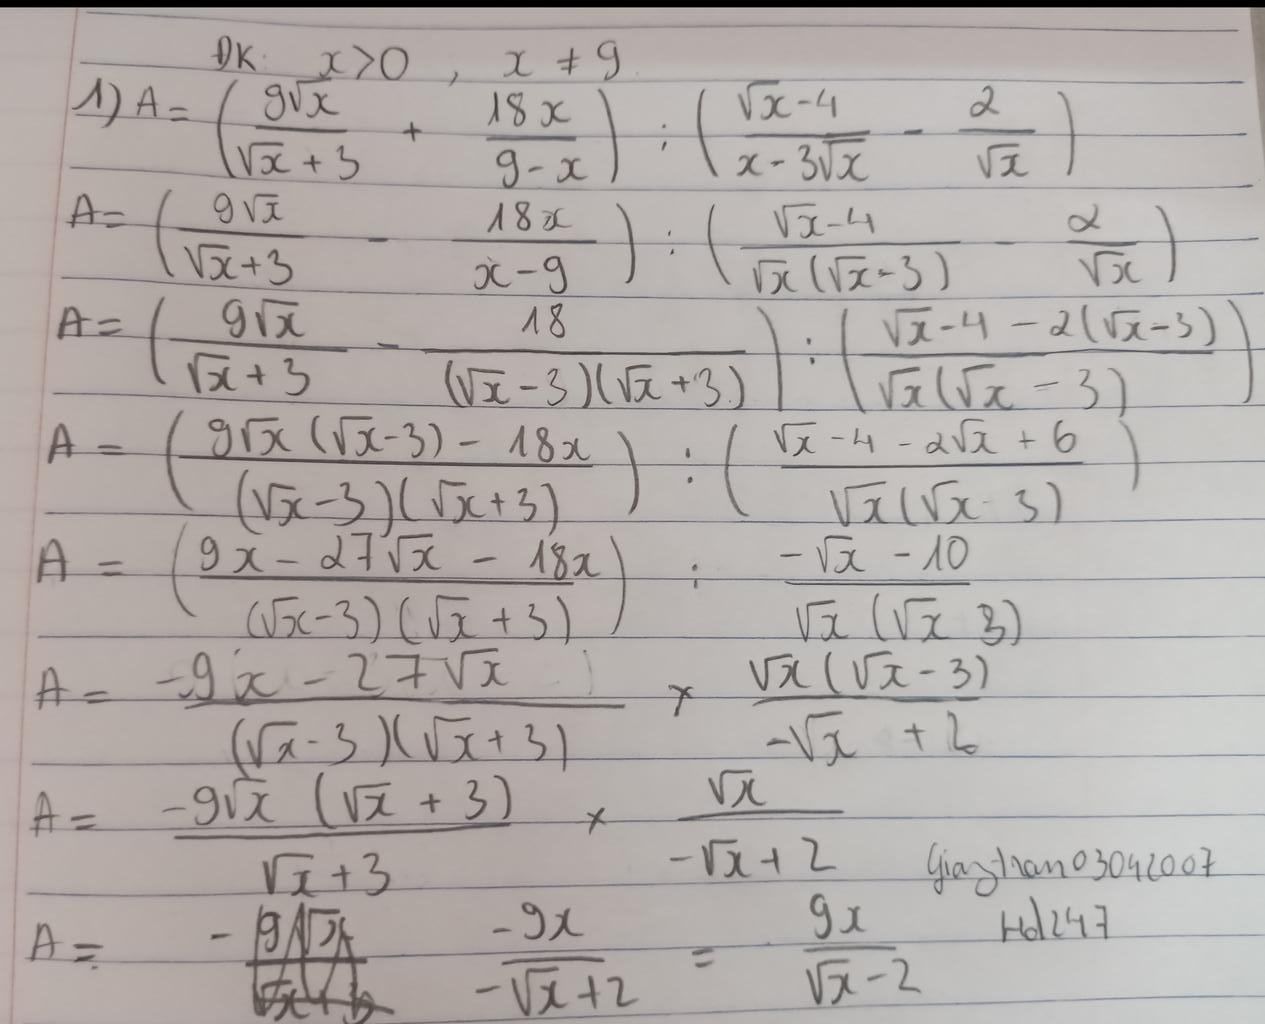 ĐK: x>0 , x ≠ 9
1) A = (9√x / (√x + 3) + 18x / (9 - x)) : ((√x - 4) / (x - 3√x) - 2 / √x)
A = (9√x / (√x + 3) - 18x / (x - 9)) : ((√x - 4) / (√x(√x - 3)) - 2 / √x)
A = (9√x / (√x + 3) - 18 / ((√x - 3)(√x + 3))) : ((√x - 4 - 2(√x - 3)) / (√x(√x - 3)))
A = ((9√x(√x - 3) - 18x) / ((√x - 3)(√x + 3))) : ((√x - 4 - 2√x + 6) / (√x(√x - 3)))
A = ((9x - 27√x - 18x) / ((√x - 3)(√x + 3))) : (-√x - 10) / (√x(√x 3))
A = (-9x - 27√x) / ((√x - 3)(√x + 3)) × (√x(√x - 3)) / (-√x + 2)
A = (-9√x(√x + 3)) / (√x + 3) × √x / (-√x + 2)
Giazhan03042007
A = -9x / (-√x + 2) = 9x / (√x - 2)
Hd247